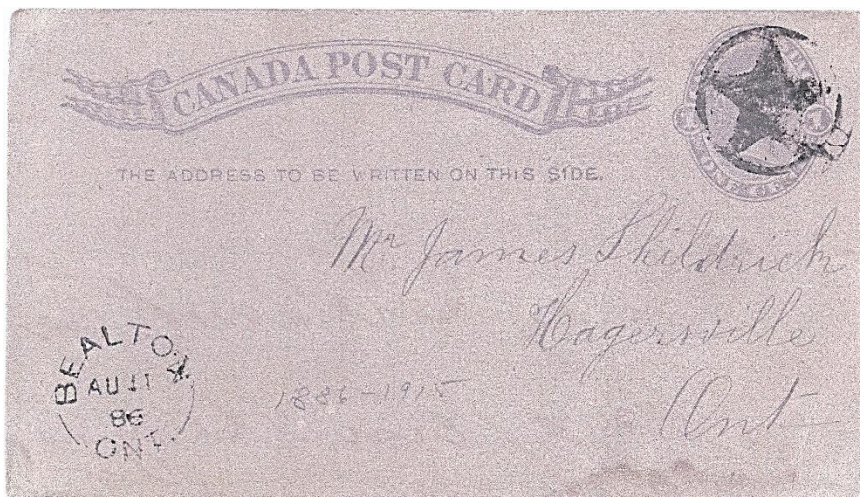 CANADA POST CARD
THE ADDRESS TO BE WRITTEN ON THIS SIDE.
Mr James
Hagersville
Ont
BEALTON
AU 11
86
ONT.
1886-1915